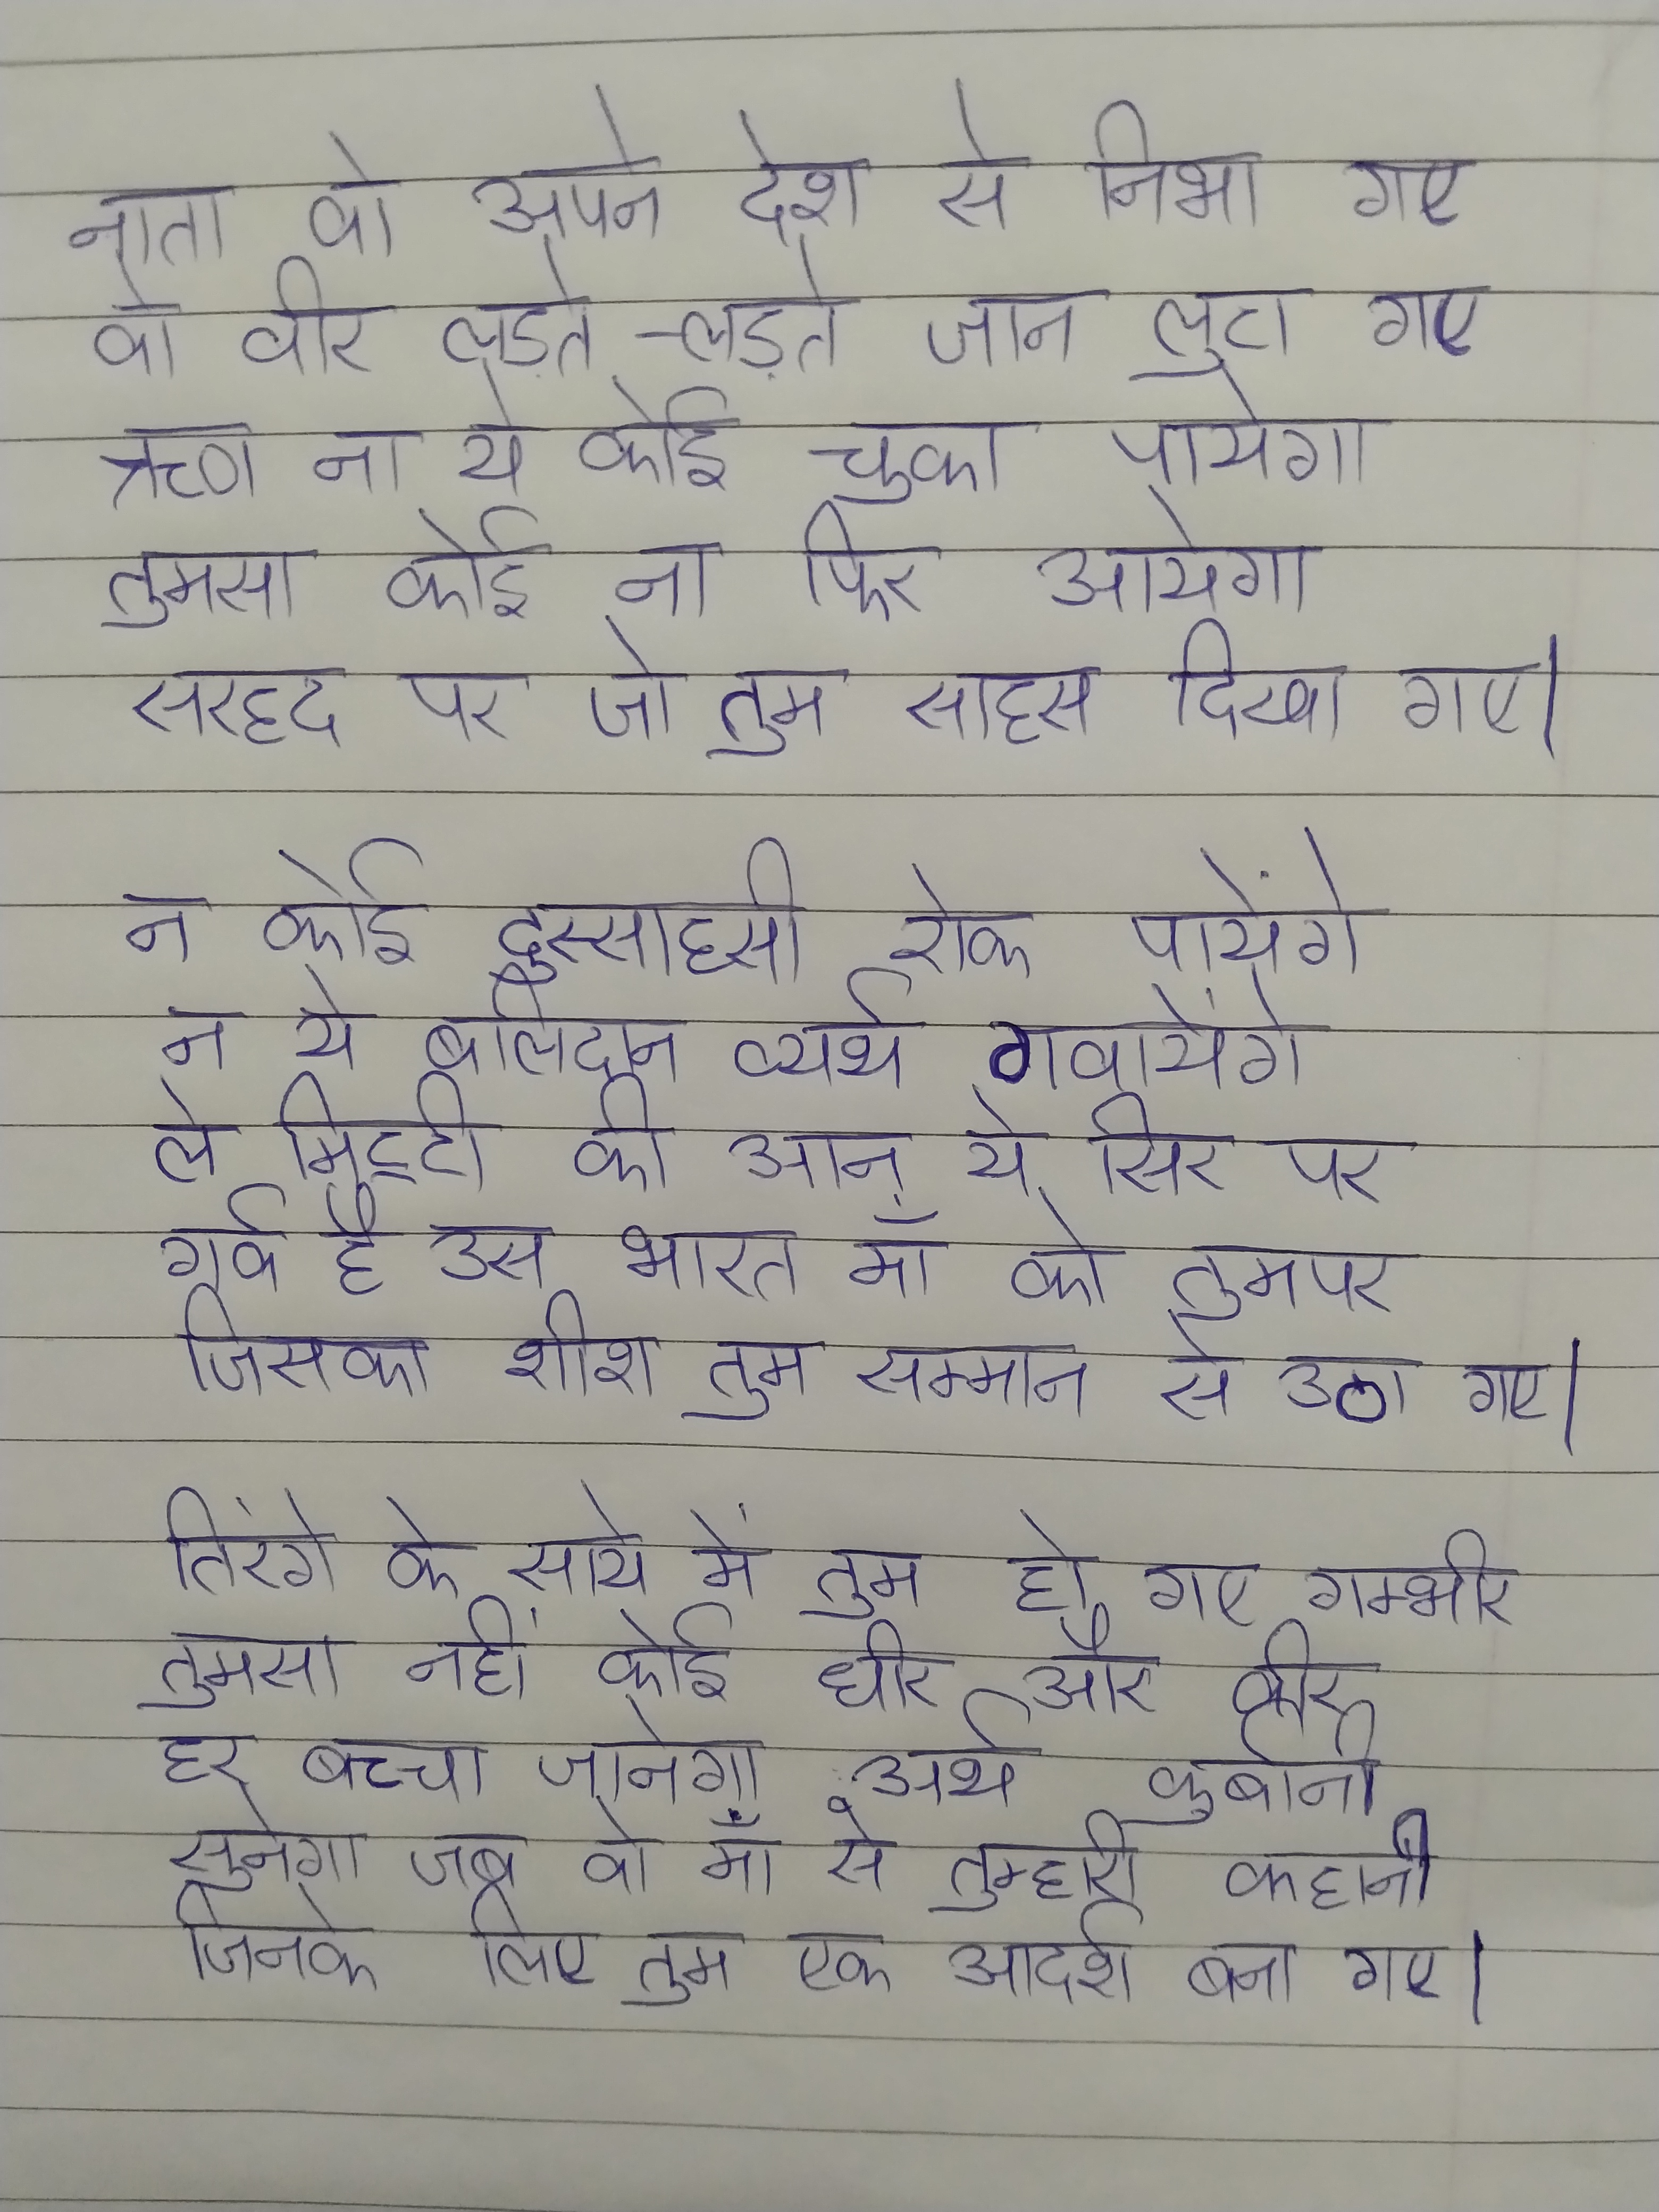 नाता वो अपने देश से निभा गए
वो वीर लड़ते-लड़ते जान लुटा गए
ऋण ना ये कोई चुका पायेगा
तुमसा कोई ना फिर आयेगा
सरहद पर जो तुम साहस दिखा गए।
न कोई दुस्साहसी रोक पायेंगे
न ये बलिदान व्यर्थ गवायेंगे
ले मिट्टी की आन ये सिर पर
गर्व है उस भारत माँ को तुमपर
जिसका शीश तुम सम्मान से उठा गए।
तिरंगे के साये में तुम हो गए गम्भीर
तुमसा नहीं कोई धीर और वीर
हर बच्चा जानेगा अर्थ कुर्बानी
सुनेगा जब वो माँ से तुम्हारी कहानी
जिनके लिए तुम एक आदर्श बना गए।